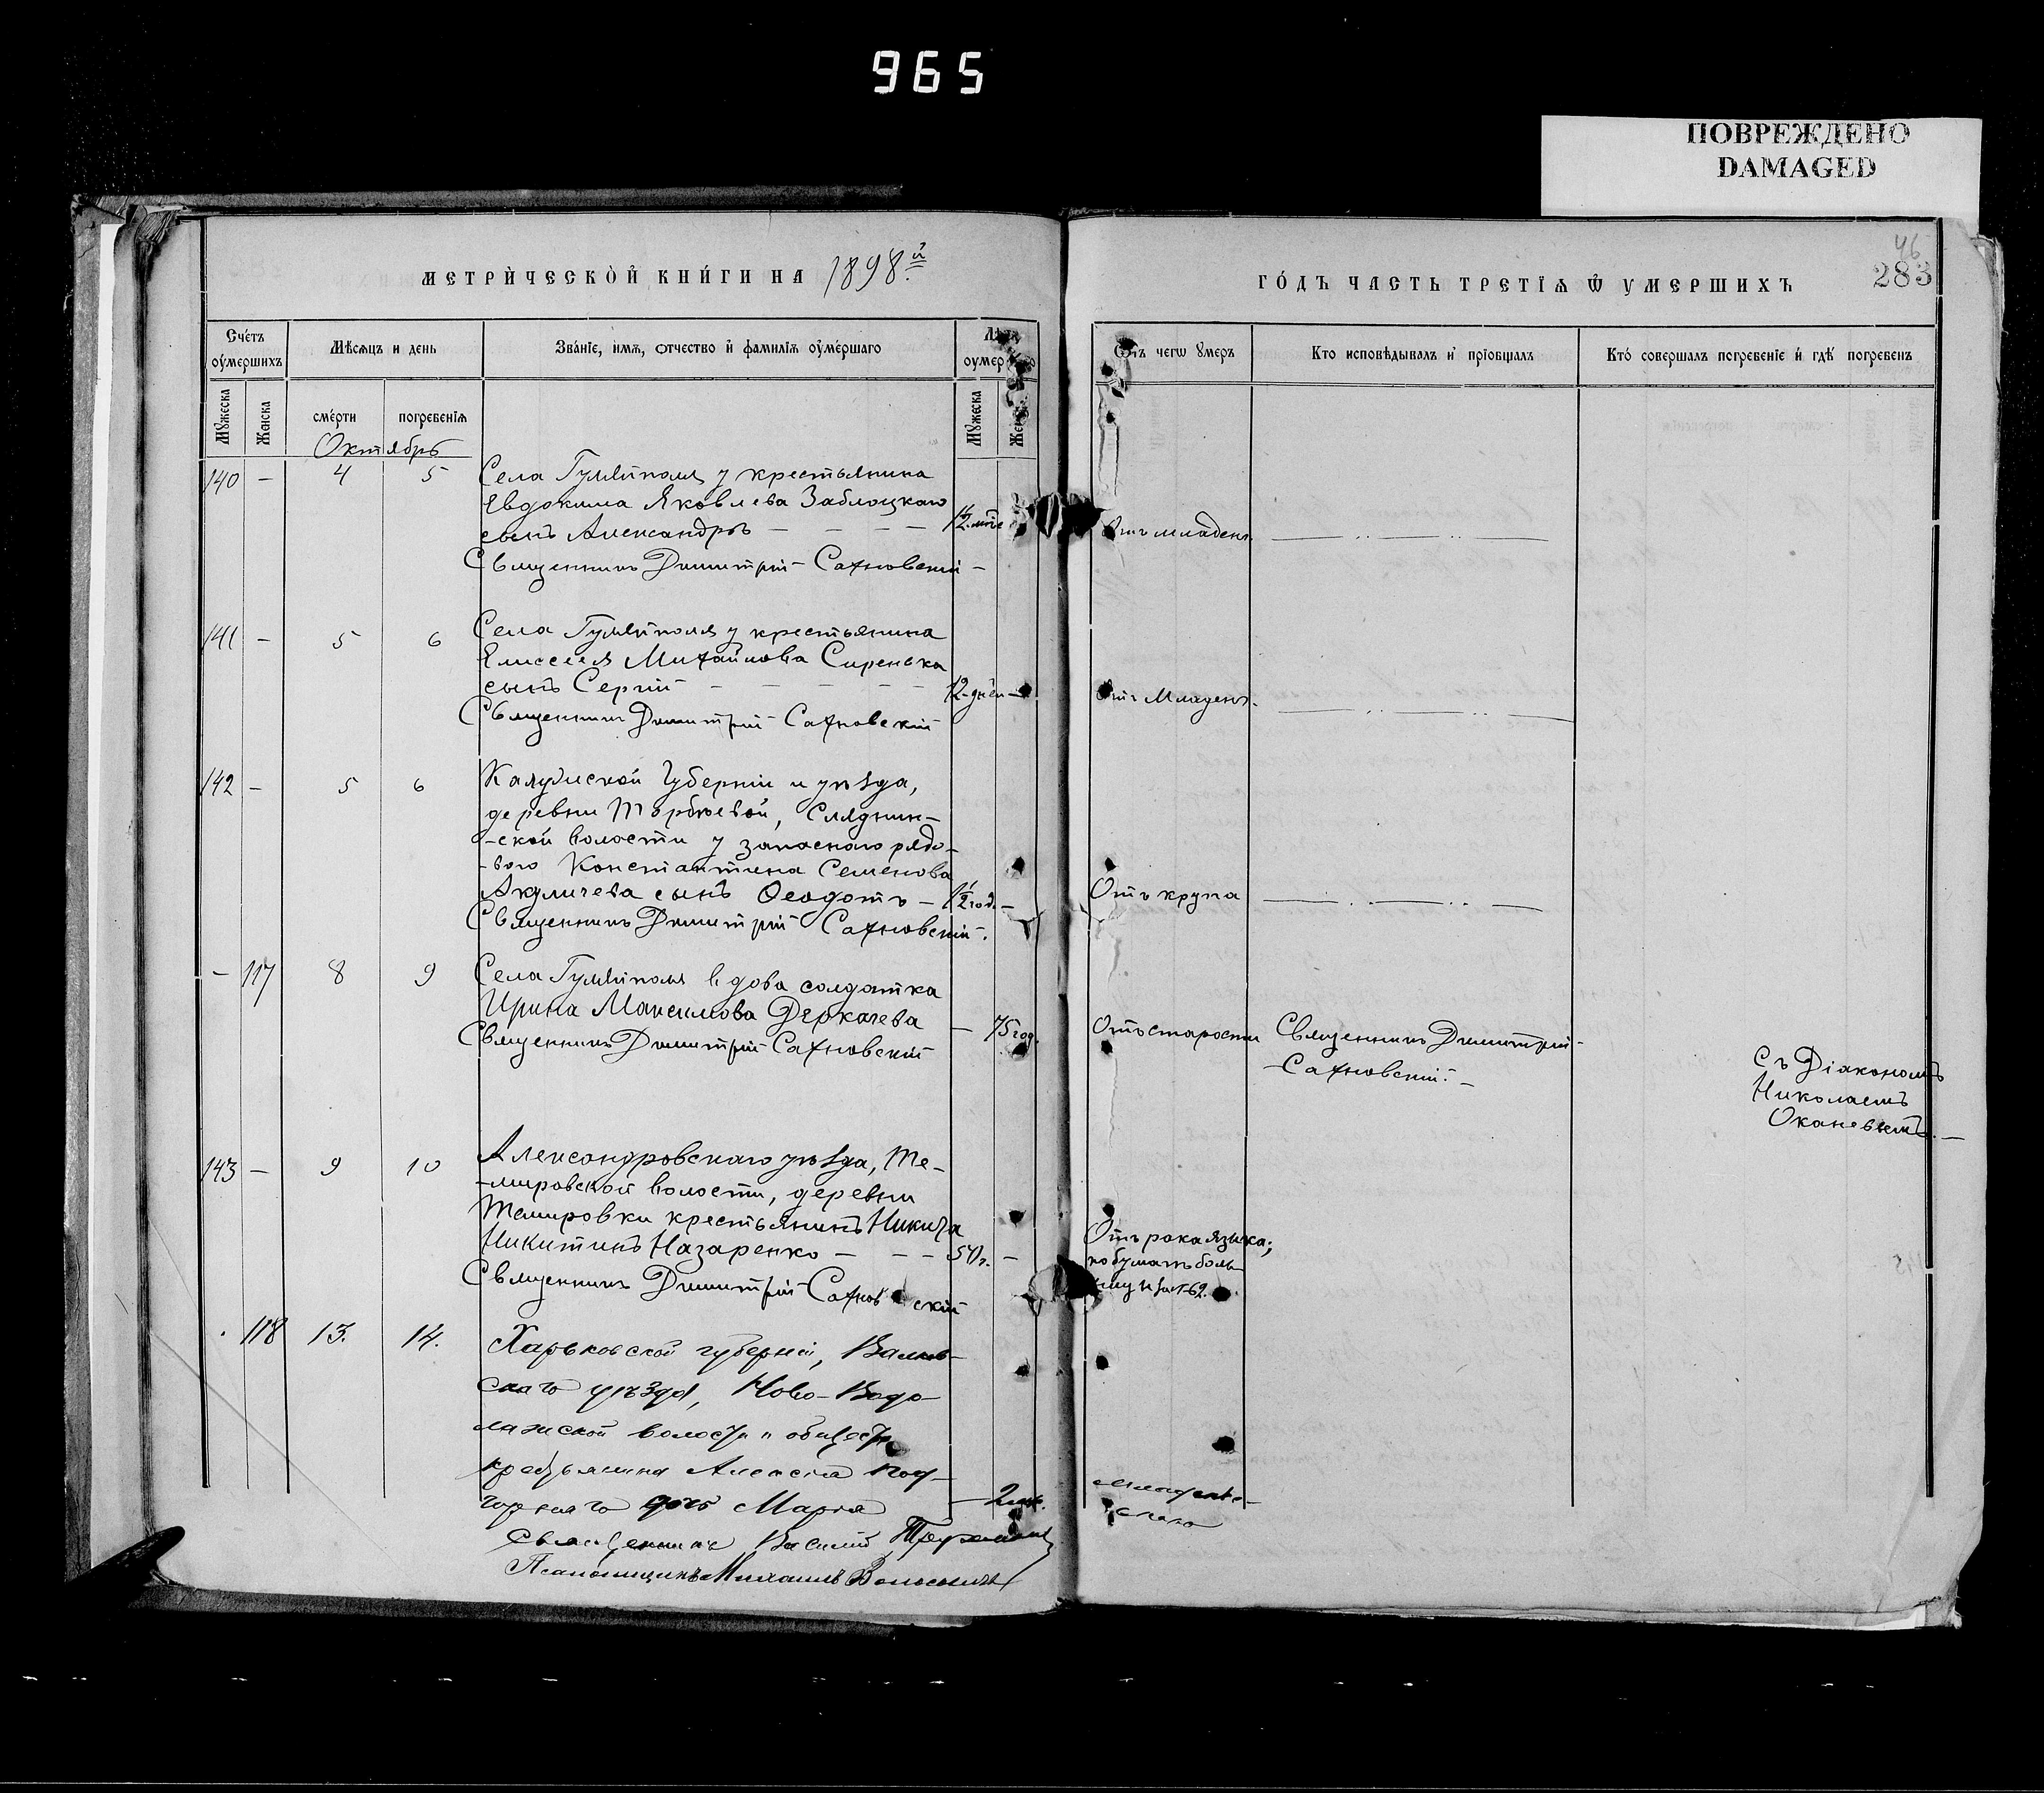 965
ПОВРЕЖДЕНО
DAMAGED
МЕТРИЧЕСКОЙ КНИГИ НА 1898.й
Счетъ оумершихъ
Мѣсяцъ и день
Званіе, имя, отчество и фамилія оумершаго
Лѣта оумер
Мужеска
Женска
смерти
погребенія
Мужеска
Женс
Октябрь
140 — 4 5 Села Гуляйполя у крестьянина
Евдокима Яковлева Заблоцкаго
сынъ Александръ — — — —
Священникъ Димитрій Сахновскій —
141 — 5 6 Села Гуляйполя у крестьянина
Елиссея Михайлова Сиренька
сынъ Сергій — — — — — 12 дней —
Священникъ Димитрій Сахновскій
142 — 5 6 Калужской Губерніи и уѣзда,
деревни Торбѣевой,
-ской волости у запаснаго рядо-
-вого Константина Семенова
Акуличева сынъ Ѳеодотъ — 1½ год. —
Священникъ Димитрій Сахновскій.
— 117 8 9 Села Гуляйполя вдова солдатка
Ирина Максимова Деркачева — 75 год.
Священникъ Димитрій Сахновскій
143 — 9 10 Александровскаго уѣзда, Те-
-мировской волости, деревни
Темировки крестьянинъ Никита
Никитинъ Назаренко — — —
Священникъ Димитрій Сахновскій
118 13. 14. Харьковской губерніи, Валков-
скаго уѣзда, Ново-Водо-
лажской волости и общест.
крестьянина Алексѣя Под-
горнаго дочь Марія — 2
Священникъ Василій
Псаломщикъ Михаилъ
46
283
ГОДЪ ЧАСТЬ ТРЕТІЯ Ѿ УМЕРШИХЪ
Ѿтъ чегѡ умеръ
Кто исповѣдывалъ и пріобщалъ
Кто совершалъ погребеніе и гдѣ погребенъ
Отъ младен. — .. — .. —
Отъ Младен. — .. —
Отъ крупа — . — .. —
Отъ старости Священникъ Димитрій
Сахновскій. —
Съ Діакономъ
Николаемъ
Оканевымъ. —
Отъ рака языка;
по бумагѣ боль-